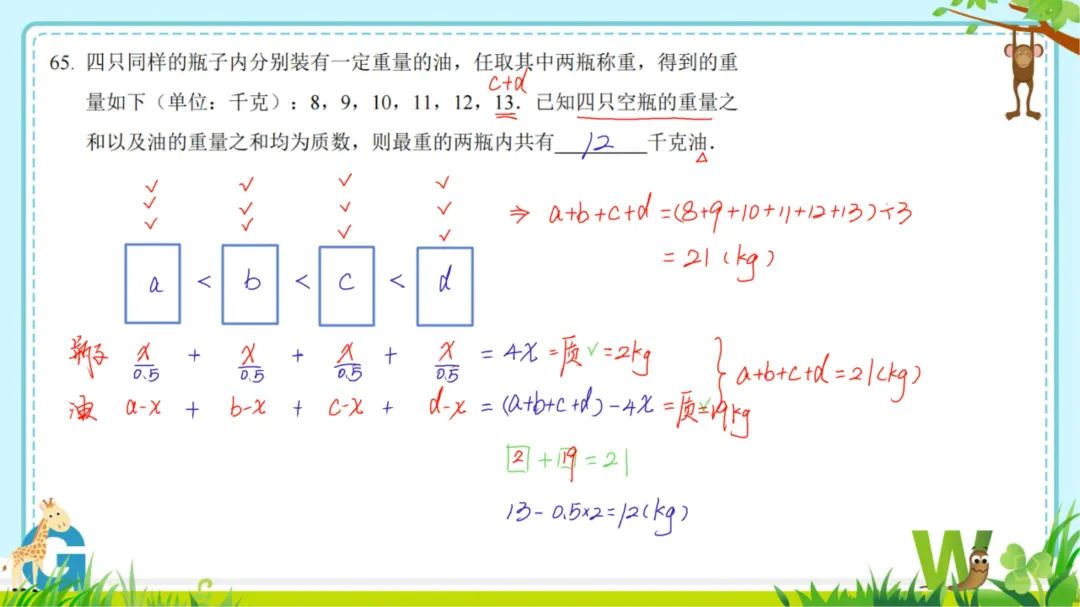 65. 四只同样的瓶子内分别装有一定重量的油，任取其中两瓶称重，得到的重
c+d
量如下（单位：千克）：8，9，10，11，12，13．已知四只空瓶的重量之
和以及油的重量之和均为质数，则最重的两瓶内共有 12 千克油．
⇒ a+b+c+d =(8+9+10+11+12+13)÷3
= 21 (kg)
a < b < c < d
瓶子 x/0.5 + x/0.5 + x/0.5 + x/0.5 = 4x = 质 ✓ = 2kg
a+b+c+d = 21(kg)
油 a-x + b-x + c-x + d-x = (a+b+c+d) - 4x = 质 ✓ = 19kg
2 + 19 = 21
13 - 0.5×2 = 12(kg)
G
W